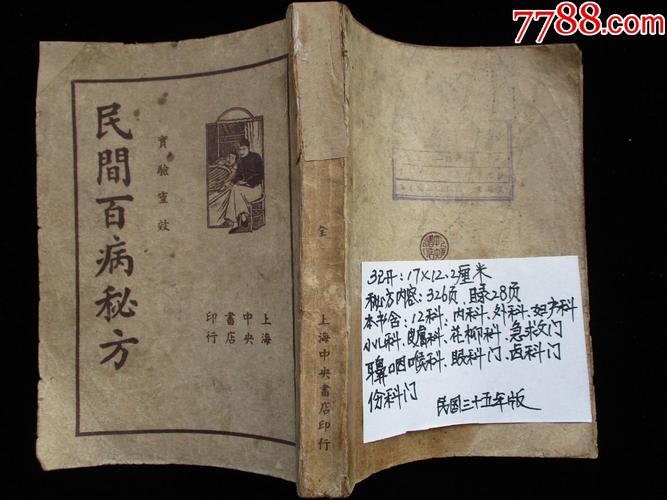 7788.com
民間百病秘方
實驗靈效
上海
中央
書店
印行
全
上海中央書店印行
32开：17×12.2厘米
秘方内容：326页、目录28页
本书含：12科、内科、外科、妇产科
小儿科、皮膚科、花柳科、急救门
鼻咽喉科、眼科门、齿科门
伤科门
民国三十五年版